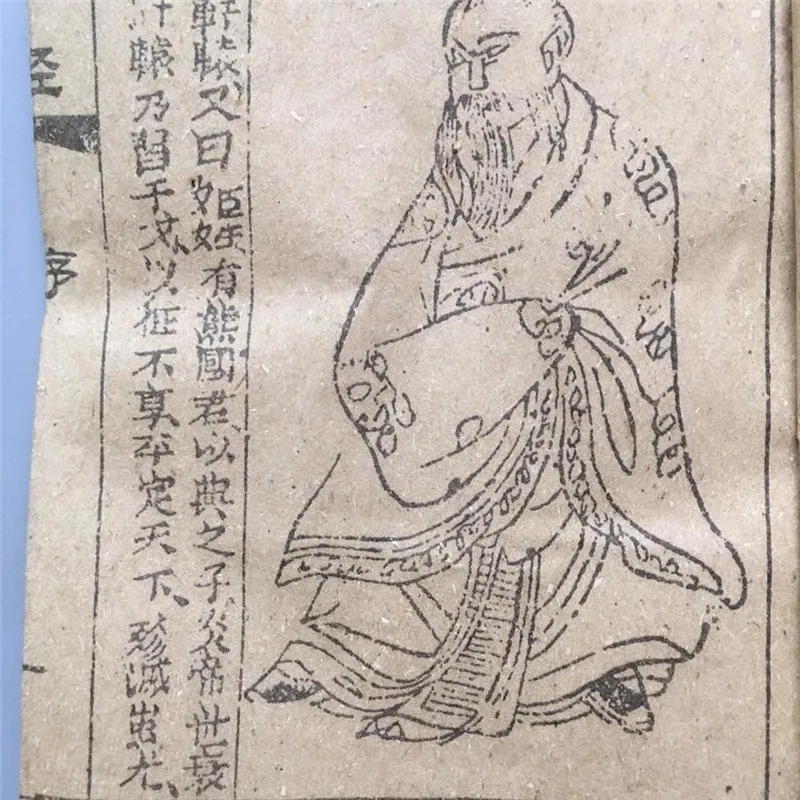 軒轅又曰姬姓有熊國君以典之子炎帝世衰
軒轅乃習干戈、以征不享平定天下、殄滅蚩尤、
经
序
一